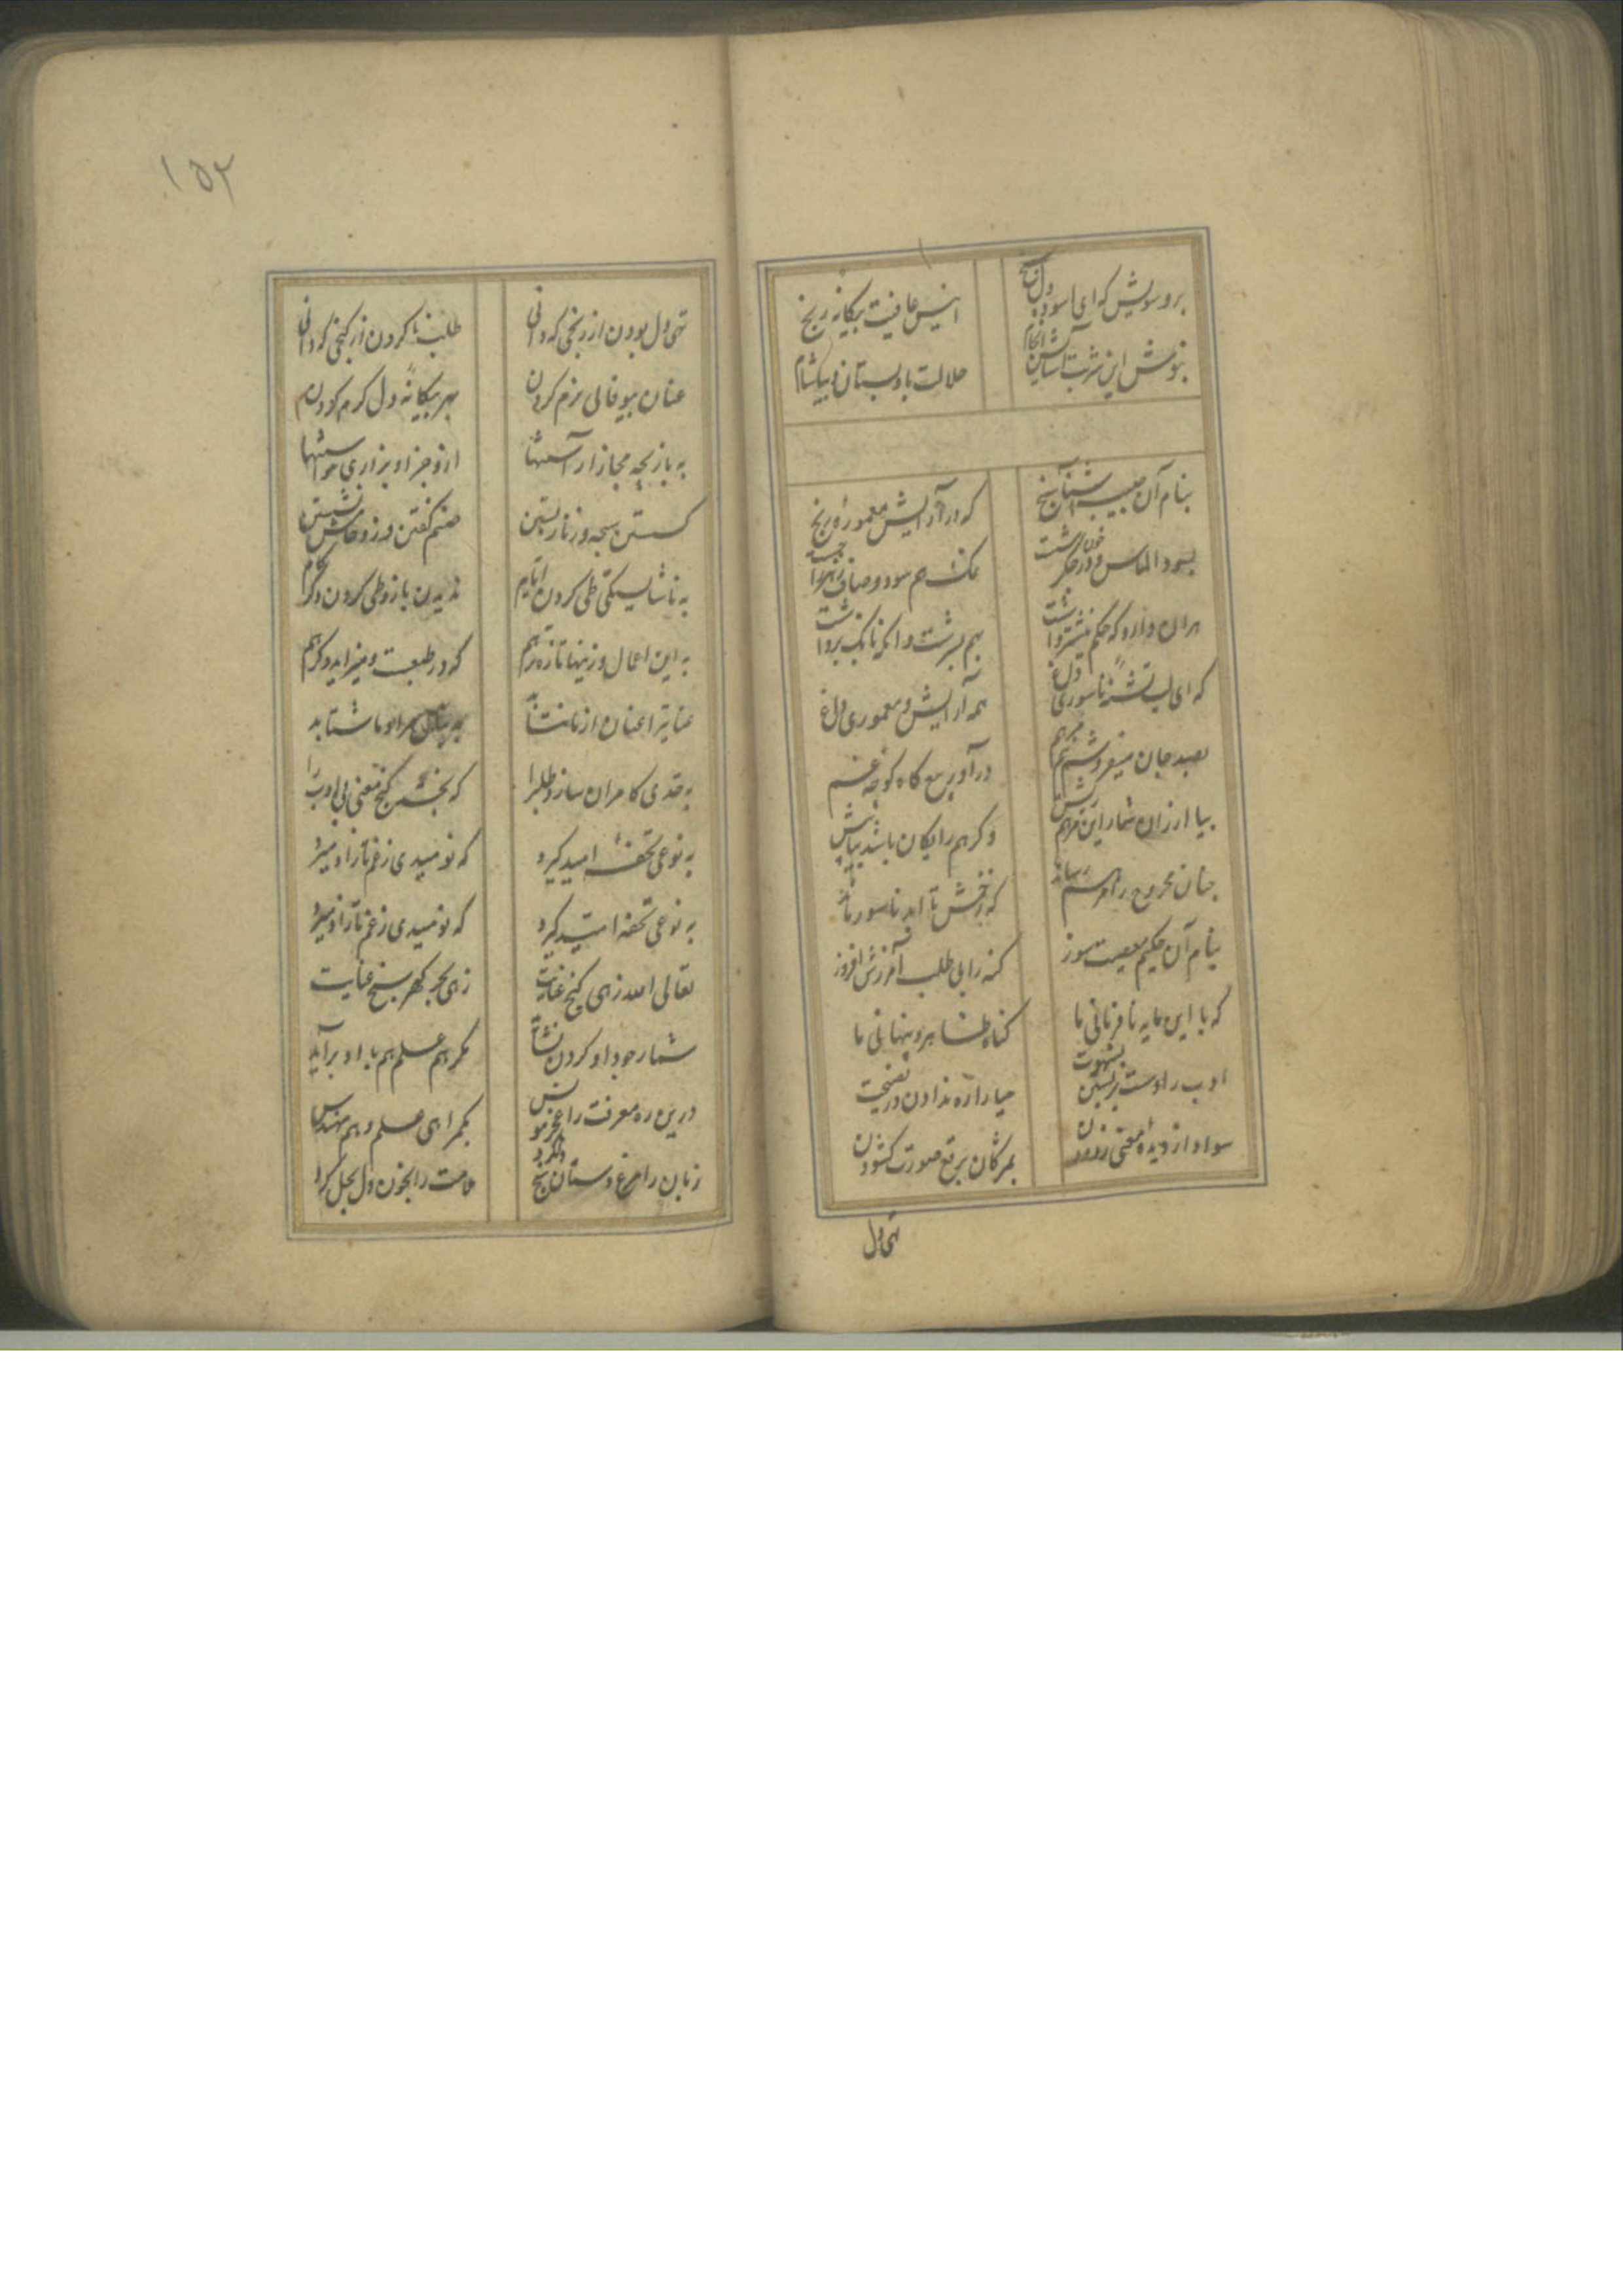 برو سویش که ای آسوده دل سنج
انیس عافیت بیگانه رنج
بنوش این شربت آتش انجام
حلالت باد بستان و بیاشام
بنام آن طبیب آشنا سنج
که در آرایش معموره رنج
بسود الماس و در جگر
نمک هم سود و
هر آن دارو که حکم
بهم بسرشت و آنگه بانگ برداشت
که ای لب تشنه ناسوری داغ
همه آرایش و معموری داغ
بصد جان میفروشم مرهم
درآورید گاه کوچه غم
بیا ارزان شمار این مرهم
وگر هم رایگان باشد
چنان مجروح را مرهم رساند
که زخمش تا ابد ناسور ماند
بنام آن حکیم معصیت سوز
گنه را بی طلب آمرزش افروز
که با این مایه نافرمانی ما
گناه ظاهر و پنهانی ما
ادب را دست بر بستن بشهوت
حیا را ره ندادن در نصیحت
سواد از دیده معنی زدودن
بمژگان برقع صورت گشودن
تهی دل
۱۵۲
تهی دل بودن از رنجی که دانی
طلب ناکردن از گنجی که دانی
عنان بیوفائی نرم کردن
بهر بیگانه دل گرم کردن
به بازیچه مجاز آراستنها
از و جز او بزاری خواستنها
گسستن سبحه و زنار بستن
صنم گفتن و زو خامش نشستن
به ناشایستگی طی کردن ایام
ندیدن باز و طی کردن دگر گام
به این اعمال و زینها تازه تر هم
که در طبعت و میزاید دگر هم
عنایت را عنان از ما نتابد
به مراد ما شتابد
به قدی کامران سازد طلب را
که بخشد گنج معنی بی ادب را
به نوعی تحفه امید گیرد
که نومیدی ز غم ما را نمیرد
به نوعی تحفه امید گیرد
که نومیدی ز غم ما را نمیرد
تعالی الله زهی گنج عنایت
زهی بحر گهر سنج عنایت
شمار جود او کردن نشاید
مگر هم علم هم با او برآید
درین ره معرفت را عجز مونس
بگمراهی علم و هم مهندس
زبان را مرغ دستان سنج دل کرد
ملامت را بخون دل بحل کرد